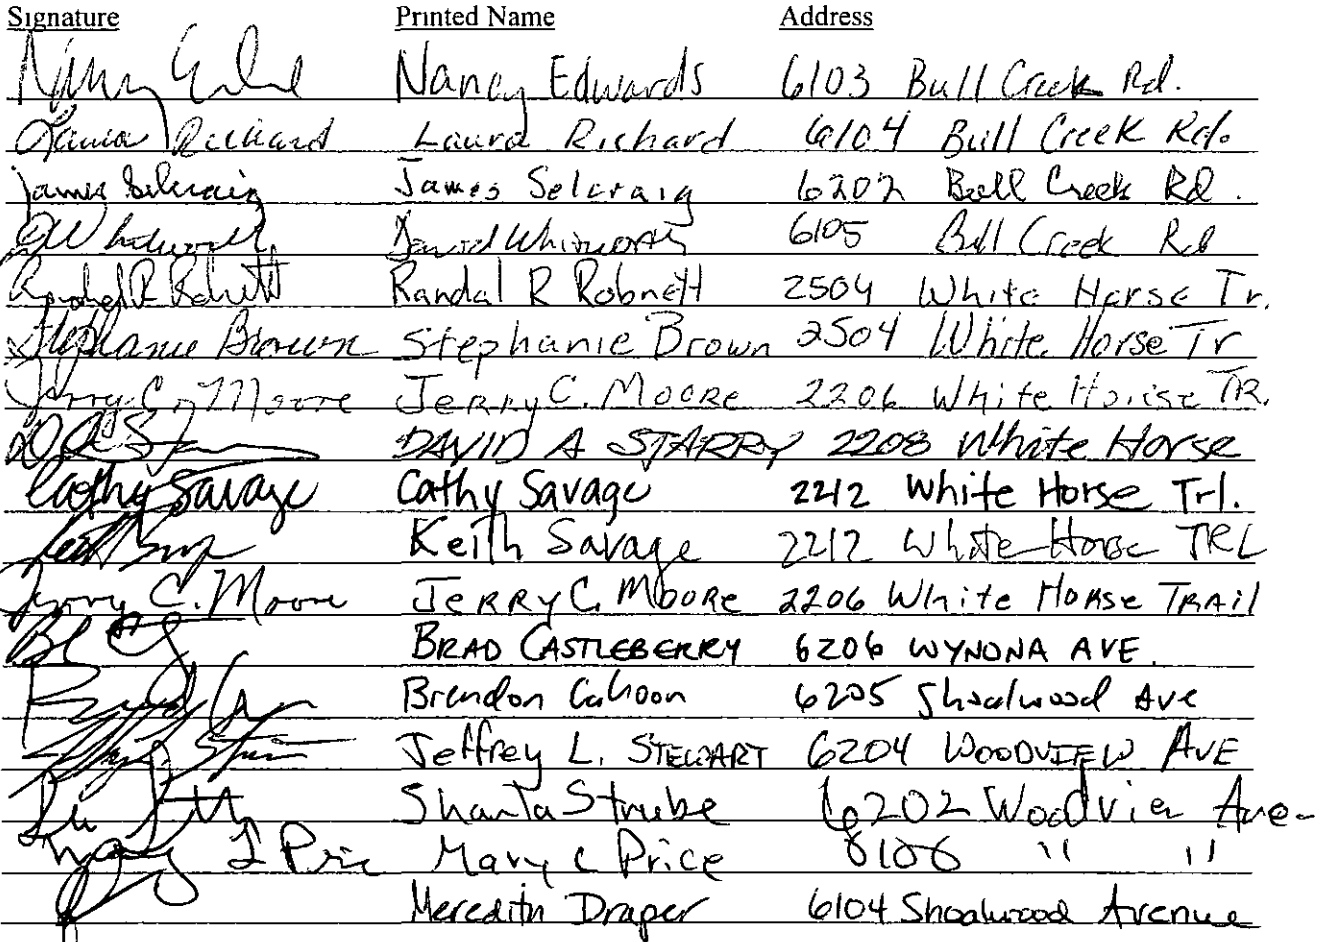 Signature Printed Name Address
Nancy Edwards 6103 Bull Creek Rd.
Laura Richard Laura Richard 6104 Bull Creek Rd.
James Selcraig James Selcraig 6202 Bull Creek Rd.
David Whitworth 6105 Bull Creek Rd
Randal R Robnett Randal R Robnett 2504 White Horse Tr.
Stephanie Brown Stephanie Brown 2504 White Horse Tr
Jerry C. Moore Jerry C. Moore 2206 White Horse TR.
DAVID A STARRY 2208 White Horse
Cathy Savage Cathy Savage 2212 White Horse Trl.
Keith Savage 2212 White Horse TRL
Jerry C. Moore Jerry C. Moore 2206 White Horse Trail
BRAD CASTLEBERRY 6206 WYNONA AVE.
Brendon Cahoon 6205 Shoalwood Ave
Jeffrey L. STEWART 6204 WOODVIEW AVE
Shanta Strube 6202 Woodview Ave.
Mary L Price 6106 " "
Meredith Draper 6104 Shoalwood Avenue